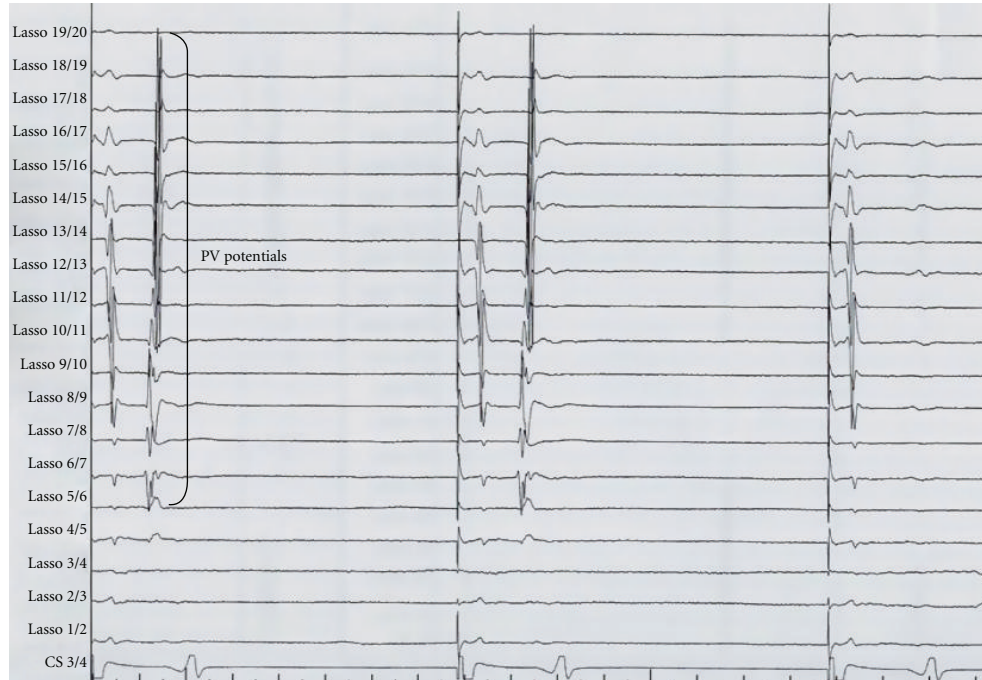 Lasso 19/20
Lasso 18/19
Lasso 17/18
Lasso 16/17
Lasso 15/16
Lasso 14/15
Lasso 13/14
Lasso 12/13
PV potentials
Lasso 11/12
Lasso 10/11
Lasso 9/10
Lasso 8/9
Lasso 7/8
Lasso 6/7
Lasso 5/6
Lasso 4/5
Lasso 3/4
Lasso 2/3
Lasso 1/2
CS 3/4